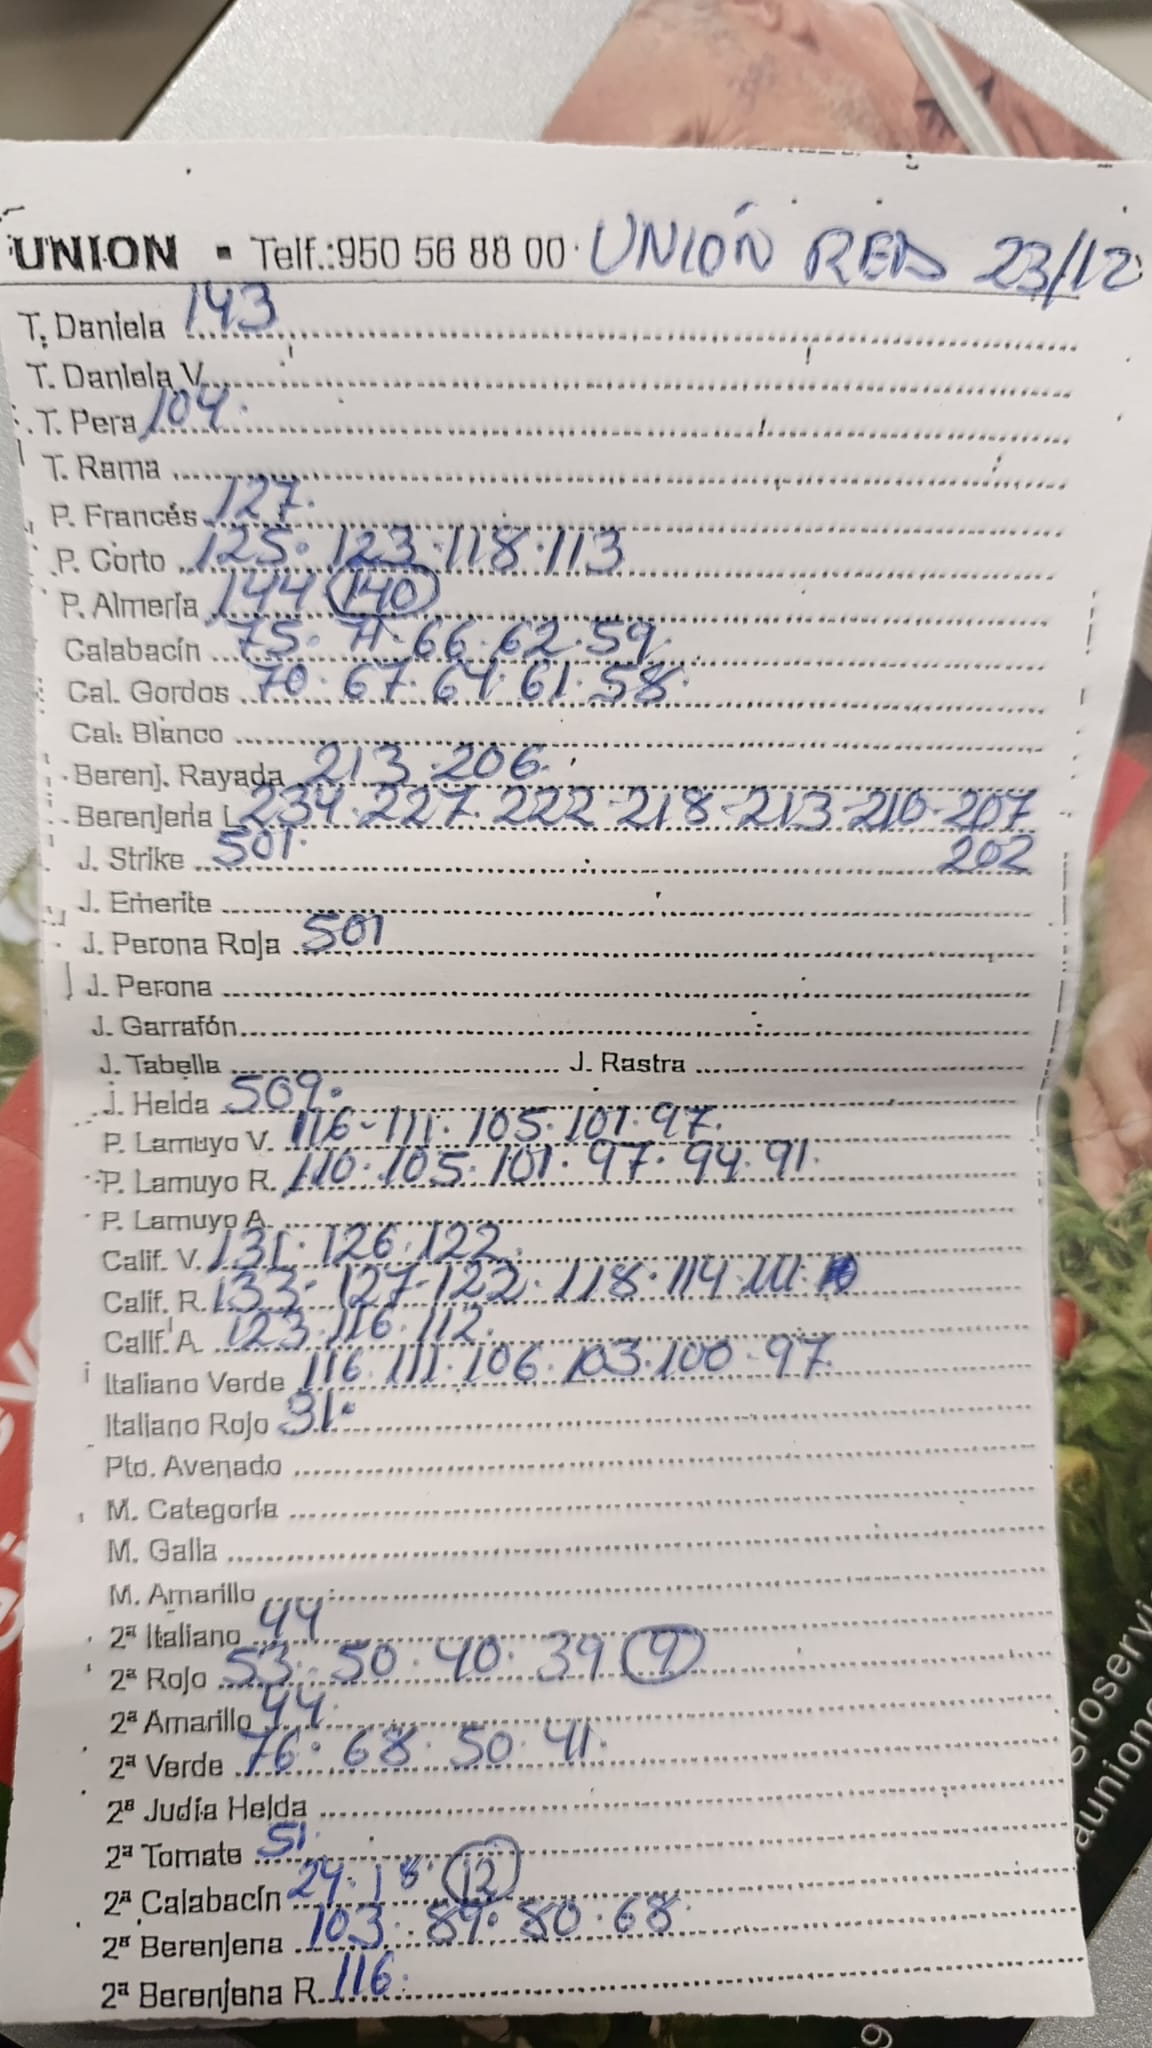 UNION ▪ Telf.:950 56 88 00 · UNIÓN RED 23/12
T. Daniela 143
T. Daniela V.
T. Pera 104.
T. Rama
P. Francés 127.
P. Corto 125. 123. 118. 113
P. Almería 144 (140)
Calabacín 75. 71. 66. 62. 59.
Cal. Gordos 70. 67. 64. 61. 58.
Cal. Blanco
Berenj. Rayada 213. 206.
Berenjena L 234. 227. 222 - 218 - 213 - 210 - 207
J. Strike 501. 202
J. Emerite
J. Perona Roja 501
J. Perona
J. Garrafón
J. Tabella J. Rastra
J. Helda 509.
P. Lamuyo V. 116 - 111. 105. 101. 97.
P. Lamuyo R. 110. 105. 101. 97. 94. 91.
P. Lamuyo A.
Calif. V. 131. 126. 122.
Calif. R. 133. 127 - 122. 118. 114. 111.
Calif. A. 123. 116. 112.
Italiano Verde 116. 111. 106. 103. 100 - 97.
Italiano Rojo 91.
Pto. Avenado
M. Categoría
M. Galla
M. Amarillo
2ª Italiano 44
2ª Rojo 53. 50. 40. 39 (9)
2ª Amarillo 44.
2ª Verde 76. 68. 50. 41.
2ª Judía Helda
2ª Tomate 51.
2ª Calabacín 24. 18. (12)
2ª Berenjena 103. 89. 80. 68.
2ª Berenjena R. 116.